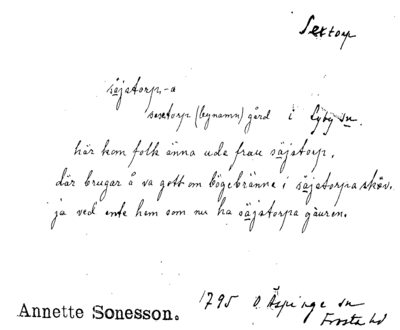 Sextorp
säjstorp-a
sextorp (bynamn) gård i Lyby sn.
här kom folk änna ude frau säjstorp.
där brugar å va gott om bögebränne i säjstorpa skov.
ja ved ente hem som nu ha säjstorpa gåuren.
Annette Sonesson. 1795 Ö. Äspinge sn
Frosta hd